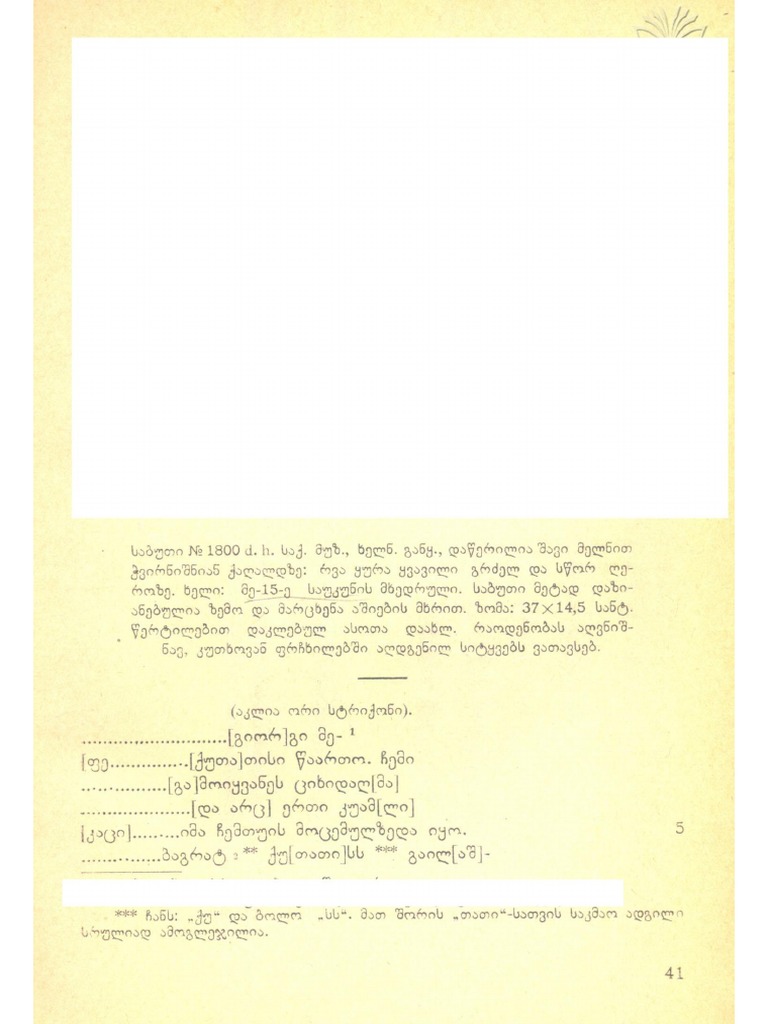 საბუთი № 1800 d. h. საქ. მუზ., ხელნ. განყ., დაწერილია შავი მელნით
ჭვირნიშნიან ქაღალდზე: რვა ყურა ყვავილი გრძელ და სწორ ღე-
როზე. ხელი: მე-15-ე საუკუნის მხედრული. საბუთი მეტად დაზი-
ანებულია ზემო და მარცხენა აშიების მხრით. ზომა: 37×14,5 სანტ.
წერტილებით დაკლებულ ასოთა დაახლ. რაოდენობას აღვნიშ-
ნავ, კუთხოვან ფრჩხილებში აღდგენილ სიტყვებს ვათავსებ.
(აკლია ორი სტრიქონი).
..........................[გიორ]გი მე- ¹
[ფე..............[ქუთა]თისი წაართო. ჩემი
................[გა]მოიყვანეს ციხიდაღ[მა]
....................[და არც] ერთი კუამ[ლი]
[კაცი].........იმა ჩემთუის მოცემულზედა იყო. 5
..............ბაგრატ ₂ ** ქუ[თათი]სს *** გაილ[აშ]-
*** ჩანს: „ქუ“ და ბოლო „სს“. მათ შორის „თათი“-სათვის საკმაო ადგილი
სრულიად ამოგლეჯილია.
41